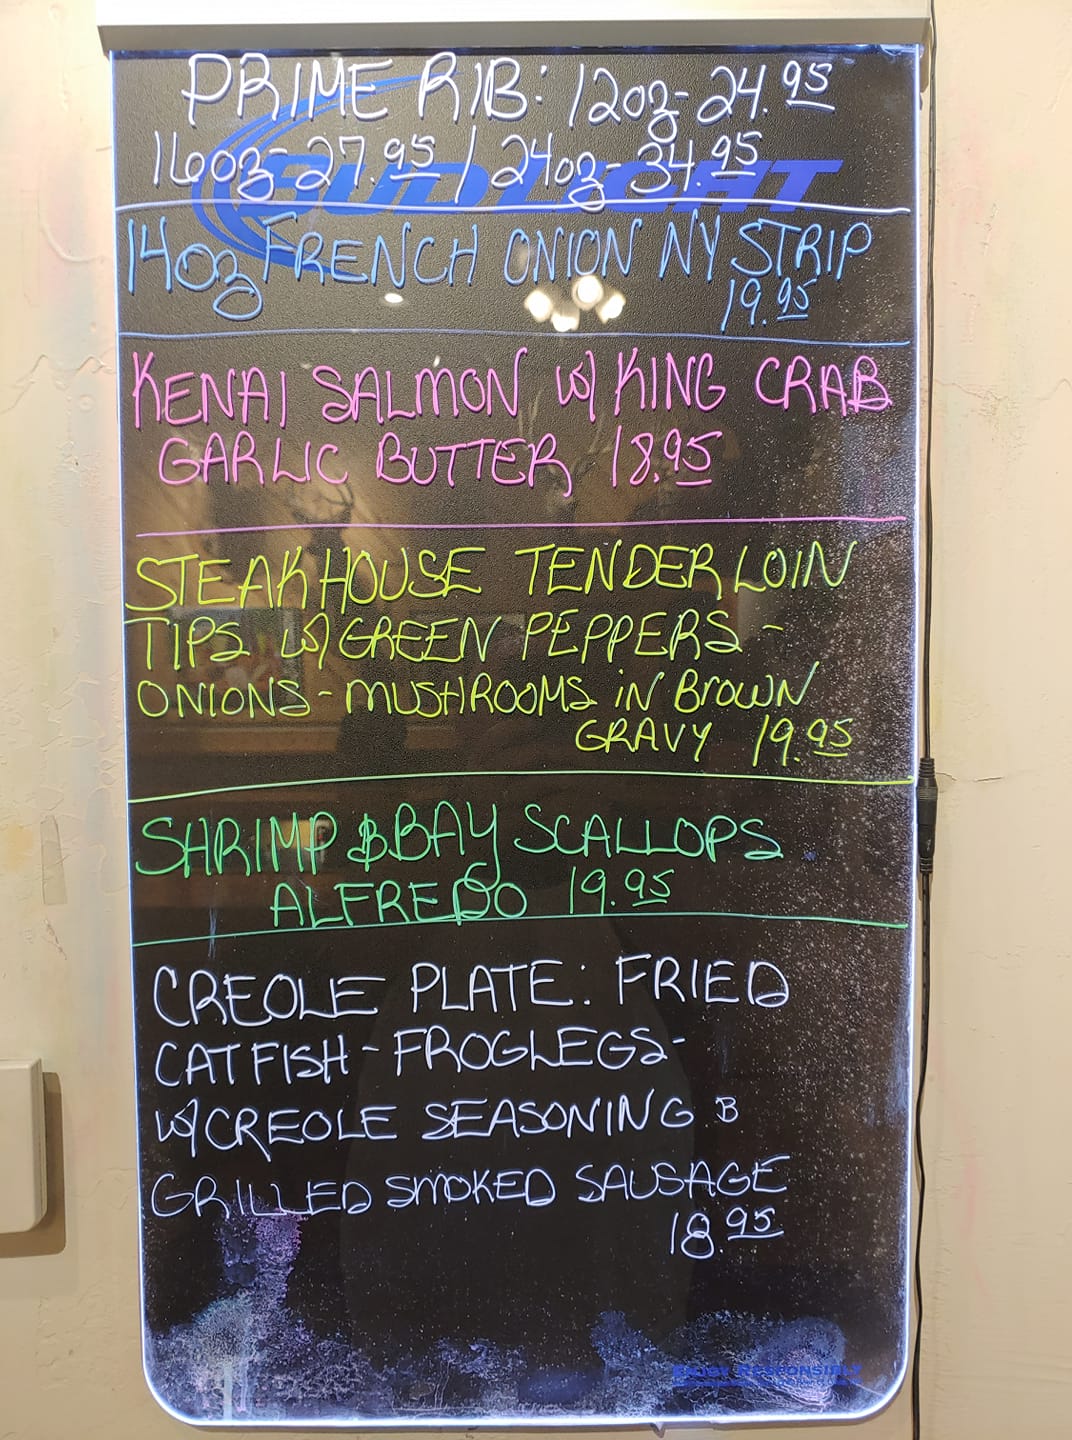 PRIME RIB: 12oz-24.95
16oz-27.95 / 24oz-34.95
BUD LIGHT
14oz FRENCH ONION NY STRIP
19.95
KENAI SALMON W/ KING CRAB
GARLIC BUTTER 18.95
STEAKHOUSE TENDERLOIN
TIPS W/ GREEN PEPPERS -
ONIONS - MUSHROOMS IN BROWN
GRAVY 19.95
SHRIMP & BAY SCALLOPS
ALFREDO 19.95
CREOLE PLATE: FRIED
CATFISH - FROGLEGS -
W/ CREOLE SEASONING &
GRILLED SMOKED SAUSAGE
18.95
ENJOY RESPONSIBLY